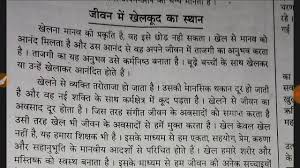 जीवन में खेलकूद का स्थान
खेलना मानव की प्रकृति है, वह इसे छोड़ नहीं सकता । खेल से मानव को
आनंद मिलता है और उस आनंद से वह अपने जीवन में ताजगी का अनुभव करता
है । ताजगी का यह अनुभव उसे कर्मनिष्ठ बनाता है । बूढ़े बच्चों के साथ खेलकर
या उन्हें खेलाकर आनंदित होते हैं ।
खेलने से व्यक्ति तरोताजा हो जाता है । उसकी मानसिक थकान दूर हो जाती
है और वह नई शक्ति के साथ कार्यक्षेत्र में कूद पड़ता है । खेलने से जीवन का
अवसाद दूर होता है । जिस तरह संगीत जीवन के अवसादों को समाप्त करता है
उसी तरह खेल भी जीवन के अवसादों से हमें मुक्त करता है । खेल केवल खेल
नहीं है, यह हमारा शिक्षक भी है । इसके माध्यम से हम एकता, सहयोग, प्रेम, करुणा
और सहानुभूति के मानवीय आदर्शों से परिचित होते हैं । खेल हमारे शरीर और
मस्तिष्क को स्वस्थ बनाता है । इसके माध्यम से हम जीवन की अनेक सच्चाइयों